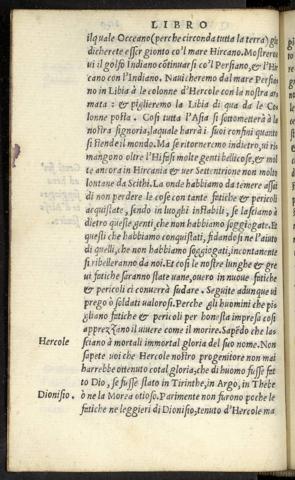 LIBRO
il quale Occeano (perche circonda tutta la terra) gia
dicherete esser gionto co'l mare Hircano. Mostrero
ui il golfo Indiano cõtinuarsi co'l Persiano, & l'Hir
cano con l'Indiano. Nauicheremo dal mare Persia
no in Libia à le colonne d'Hercole con la nostra ar
mata: & piglieremo la Libia di qua da le Co
lonne posta. Cosi tutta l'Asia si sottometterà à la
nostra signoria, laquale harrà i suoi confini quanto
si stende il mondo. Ma se ritorneremo indietro, ui ri
mangono oltre l'Hifasi molte genti bellicose, & mol
te ancora in Hircania & uer Settentrione non molto
lontane da Scithi. La onde habbiamo da temere assai
di non perdere le cose con tante fatiche & pericoli
acquistate, sendo in luoghi instabili, se lasciamo à
dietro queste genti, che non habbiamo soggiogate. Et
questi che habbiamo conquistati, fidandosi ne l'aiuto
di quelli, che non habbiamo soggiogati, incontanente
si ribelleranno da noi. Et cosi le nostre lunghe & gre
ui fatiche saranno state uane, ouero in nuoue fatiche
& pericoli ci conuerrà sudare. Seguite adunque ui
prego ò soldati ualorosi. Perche gli huomini che pi
gliano fatiche & pericoli per honesta impresa cosi
apprezzano il uiuere come il morire. Sapẽdo che la-
Hercole sciano à mortali immortal gloria del suo nome. Non
sapete uoi che Hercole nostro progenitore non mai
harrebbe ottenuto cotal gloria, che di huomo fusse fat
to Dio, se fusse stato in Tirinthe, in Argo, in Thebe
Dionisio. ò ne la Morea otioso. Parimente non furono poche le
fatiche ne leggieri di Dionisio, tenuto d'Hercole ma